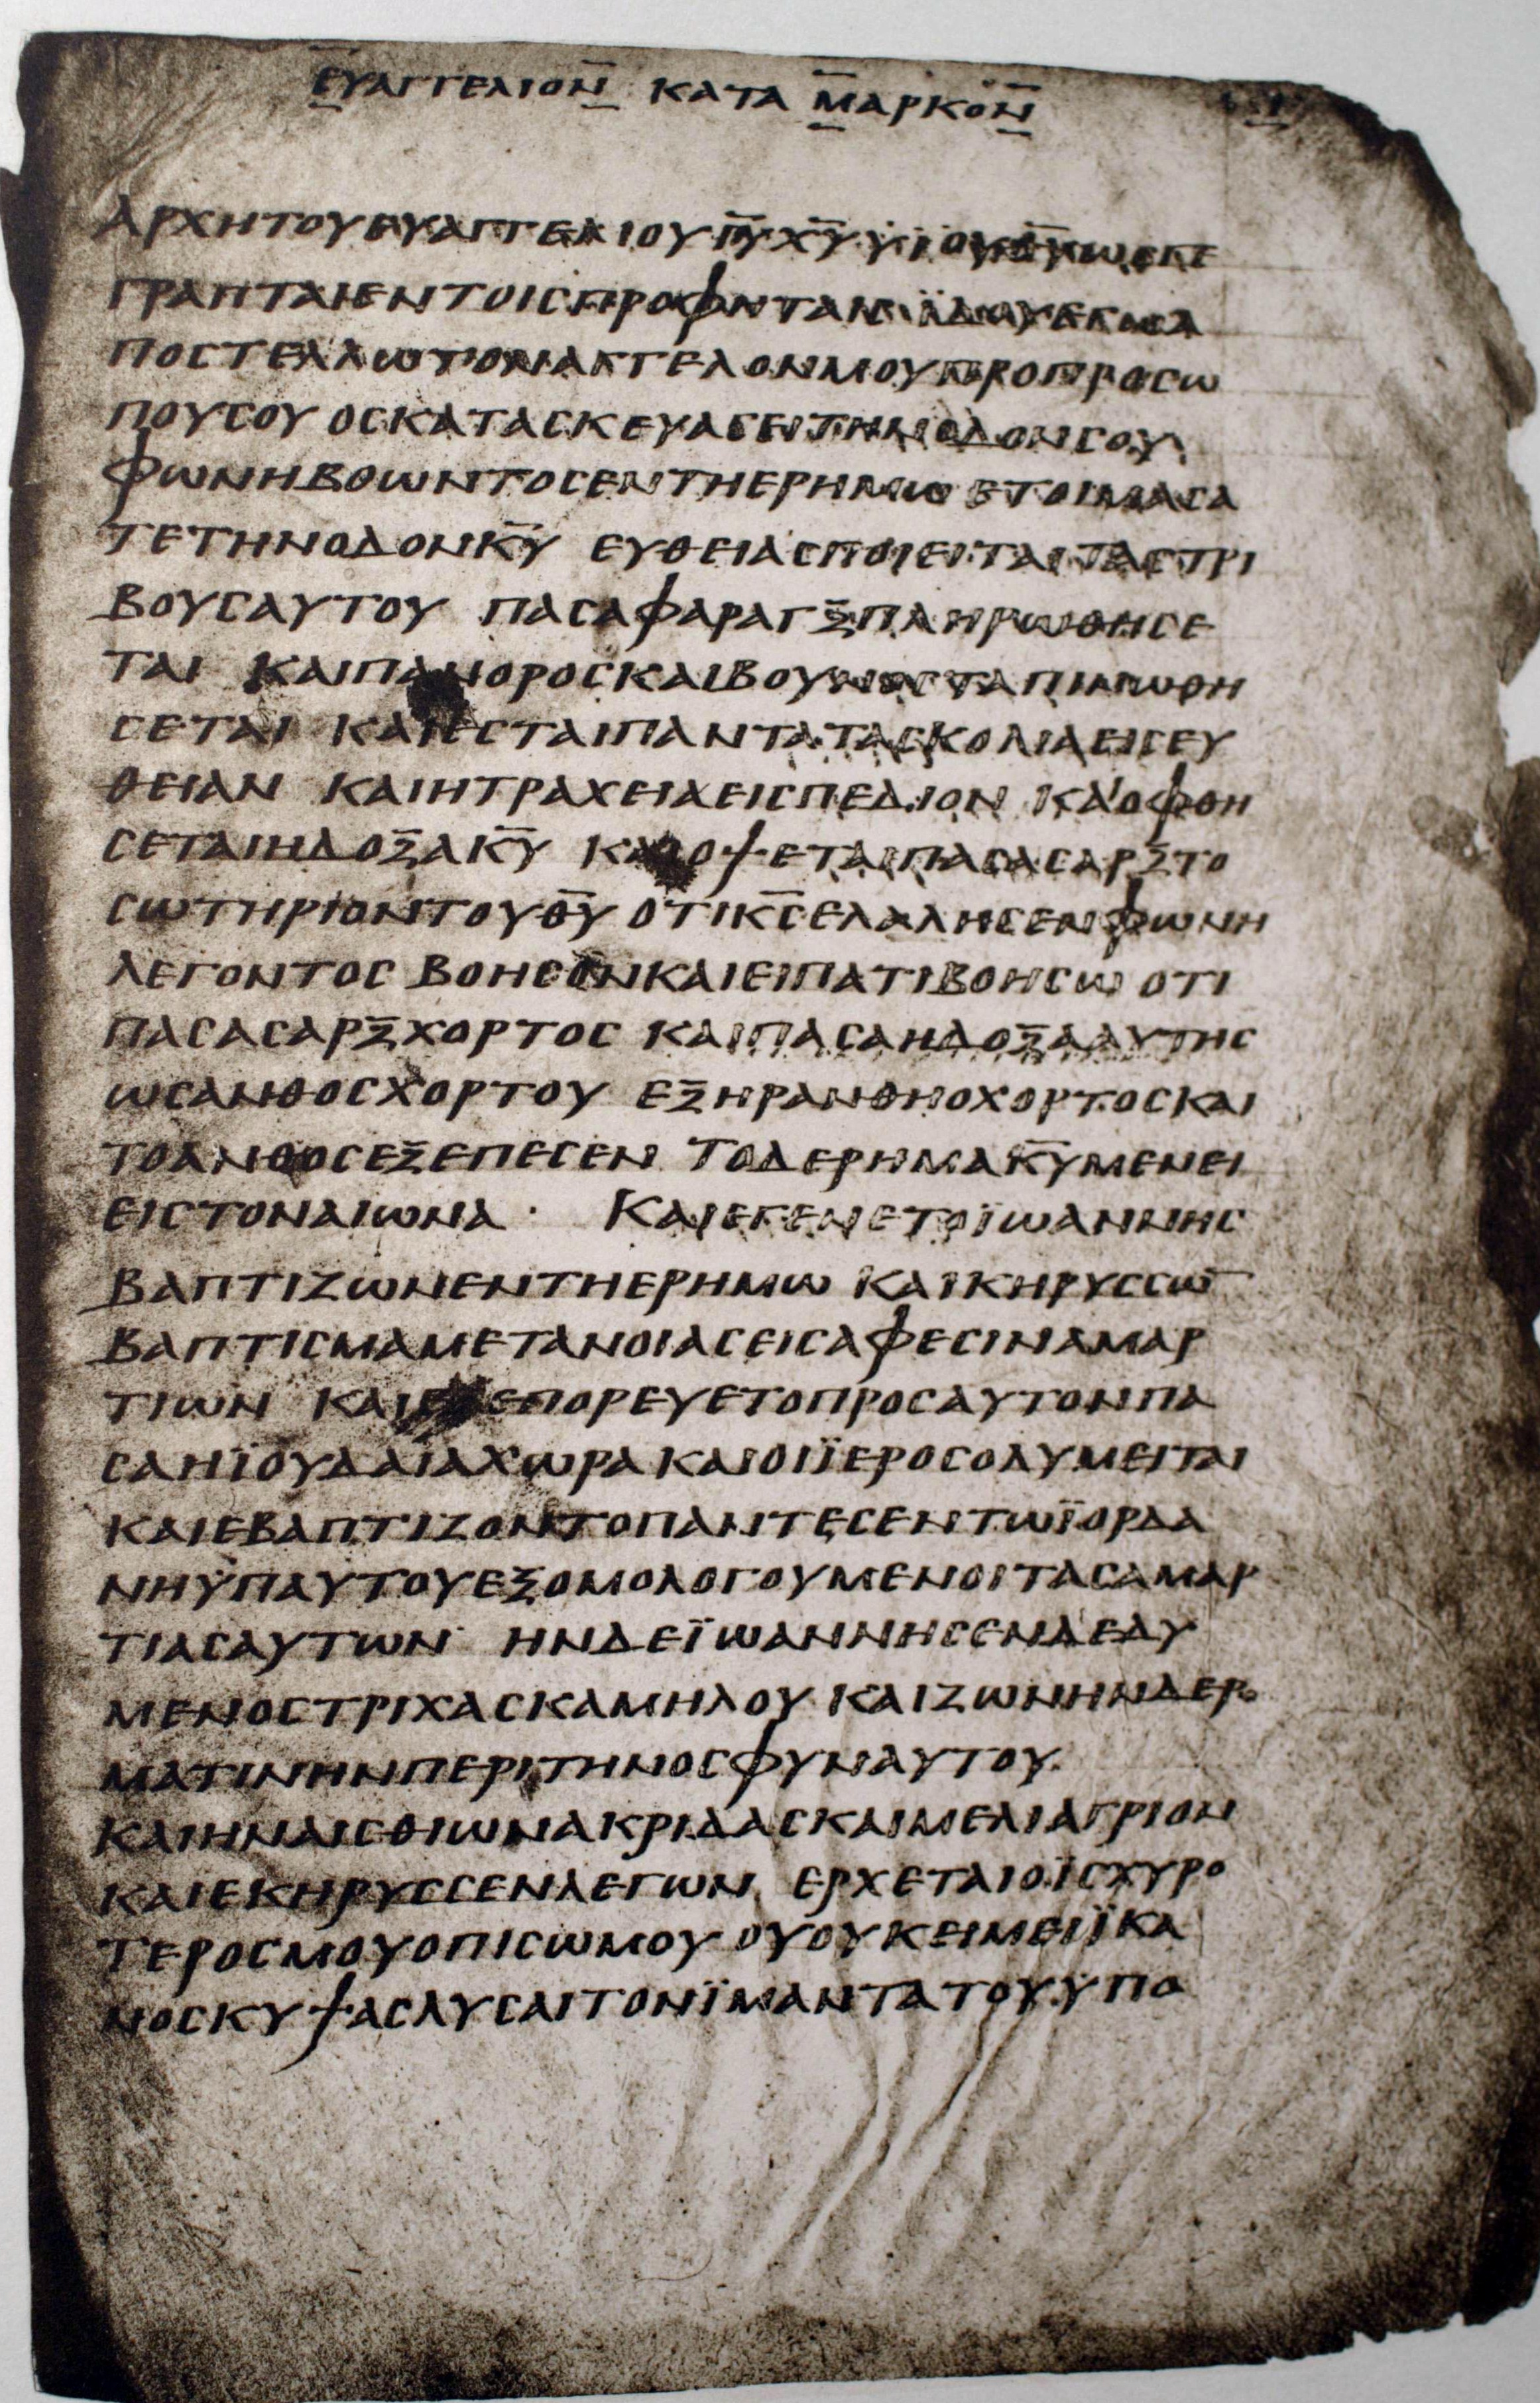 ΕΥΑΓΓΕΛΙΟΝ ΚΑΤΑ ΜΑΡΚΟΝ
ΑΡΧΗΤΟΥΕΥΑΓΓΕΛΙΟΥΙ̅Υ̅Χ̅Υ̅ΥΪΟΥΘ̅Υ̅ΩΣΓΕ
ΓΡΑΠΤΑΙΕΝΤΟΙΣΠΡΟΦΗΤΑΙΣΪΔΟΥΕΓΩΑ
ΠΟΣΤΕΛΛΩΤΟΝΑΓΓΕΛΟΝΜΟΥΠΡΟΠΡΟΣΩ
ΠΟΥΣΟΥ ΟΣΚΑΤΑΣΚΕΥΑΣΕΙΤΗΝΟΔΟΝΣΟΥ
ΦΩΝΗΒΟΩΝΤΟΣΕΝΤΗΕΡΗΜΩ ΕΤΟΙΜΑΣΑ
ΤΕΤΗΝΟΔΟΝΚ̅Υ̅ ΕΥΘΕΙΑΣΠΟΙΕΙΤΑΙΤΑΣΤΡΙ
ΒΟΥΣΑΥΤΟΥ ΠΑΣΑΦΑΡΑΓΞΠΛΗΡΩΘΗΣΕ
ΤΑΙ ΚΑΙΠΑΝΟΡΟΣΚΑΙΒΟΥΝΟΣΤΑΠΙΝΩΘΗ
ΣΕΤΑΙ ΚΑΙΕΣΤΑΙΠΑΝΤΑΤΑΣΚΟΛΙΑΕΙΣΕΥ
ΘΕΙΑΝ ΚΑΙΗΤΡΑΧΕΙΑΕΙΣΠΕΔΙΟΝ ΚΑΙΟΦΘΗ
ΣΕΤΑΙΗΔΟΞΑΚ̅Υ̅ ΚΑΙΟΨΕΤΑΙΠΑΣΑΣΑΡΞΤΟ
ΣΩΤΗΡΙΟΝΤΟΥΘ̅Υ̅ ΟΤΙΚ̅Σ̅ΕΛΑΛΗΣΕΝΦΩΝΗ
ΛΕΓΟΝΤΟΣ ΒΟΗΣΟΝΚΑΙΕΙΠΑΤΙΒΟΗΣΩ ΟΤΙ
ΠΑΣΑΣΑΡΞΧΟΡΤΟΣ ΚΑΙΠΑΣΑΗΔΟΞΑΑΥΤΗΣ
ΩΣΑΝΘΟΣΧΟΡΤΟΥ ΕΞΗΡΑΝΘΗΟΧΟΡΤΟΣΚΑΙ
ΤΟΑΝΘΟΣΕΞΕΠΕΣΕΝ ΤΟΔΕΡΗΜΑΚ̅Υ̅ΜΕΝΕΙ
ΕΙΣΤΟΝΑΙΩΝΑ · ΚΑΙΕΓΕΝΕΤΟΪΩΑΝΝΗΣ
ΒΑΠΤΙΖΩΝΕΝΤΗΕΡΗΜΩ ΚΑΙΚΗΡΥΣΣΩ̅
ΒΑΠΤΙΣΜΑΜΕΤΑΝΟΙΑΣΕΙΣΑΦΕΣΙΝΑΜΑΡ
ΤΙΩΝ ΚΑΙΕΞΕΠΟΡΕΥΕΤΟΠΡΟΣΑΥΤΟΝΠΑ
ΣΑΗΪΟΥΔΑΙΑΧΩΡΑΚΑΙΟΙΪΕΡΟΣΟΛΥΜΕΙΤΑΙ
ΚΑΙΕΒΑΠΤΙΖΟΝΤΟΠΑΝΤΕΣΕΝΤΩΪΟΡΔΑ
ΝΗΫΠΑΥΤΟΥΕΞΟΜΟΛΟΓΟΥΜΕΝΟΙΤΑΣΑΜΑΡ
ΤΙΑΣΑΥΤΩΝ ΗΝΔΕΪΩΑΝΝΗΣΕΝΔΕΔΥ
ΜΕΝΟΣΤΡΙΧΑΣΚΑΜΗΛΟΥ ΚΑΙΖΩΝΗΝΔΕΡ
ΜΑΤΙΝΗΝΠΕΡΙΤΗΝΟΣΦΥΝΑΥΤΟΥ
ΚΑΙΗΝΑΙΣΘΙΩΝΑΚΡΙΔΑΣΚΑΙΜΕΛΙΑΓΡΙΟΝ
ΚΑΙΕΚΗΡΥΣΣΕΝΛΕΓΩΝ ΕΡΧΕΤΑΙΟΪΣΧΥΡΟ
ΤΕΡΟΣΜΟΥΟΠΙΣΩΜΟΥ ΟΥΟΥΚΕΙΜΕΙΪΚΑ
ΝΟΣΚΥΨΑΣΛΥΣΑΙΤΟΝΪΜΑΝΤΑΤΟΥΫΠΟ